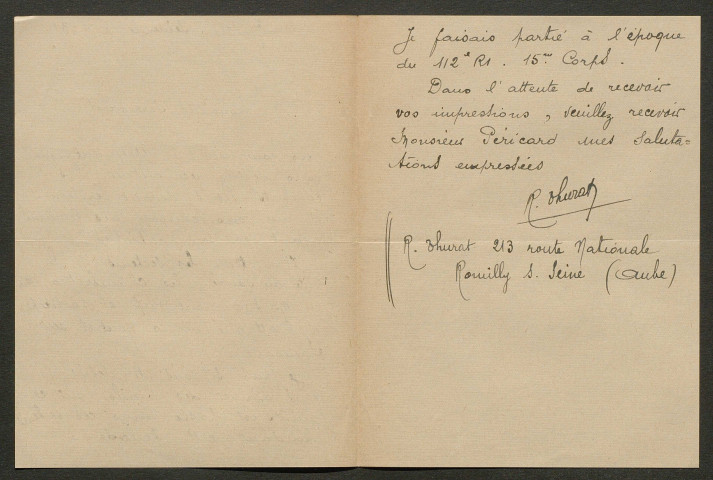 Je faisais partie à l'époque
du 112e RI. 15me Corps.
Dans l'attente de recevoir
vos impressions, veuillez recevoir
Monsieur Péricard mes saluta=
tions empressées
R. Thurat
R. Thurat 213 route Nationale
Romilly s. Seine (Aube)